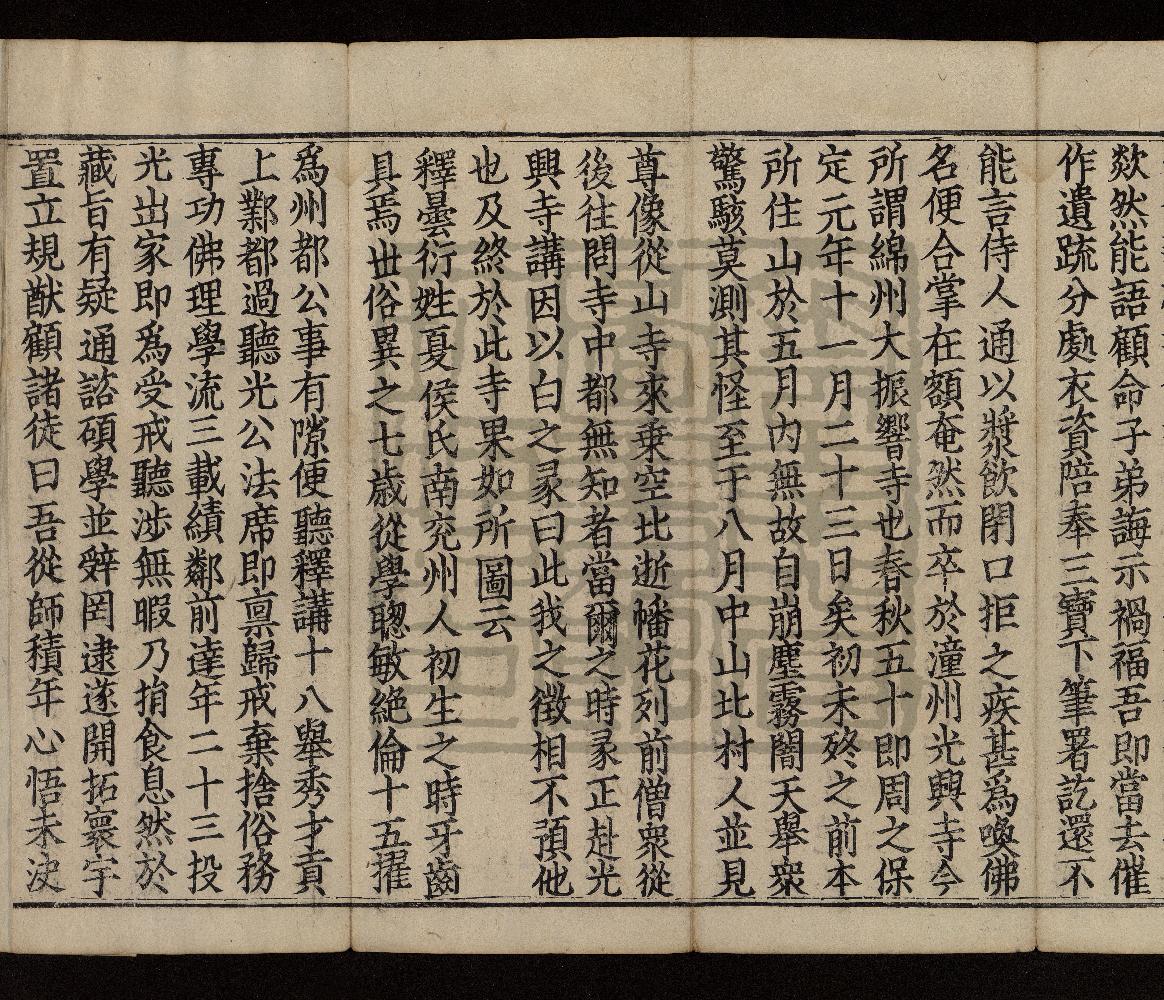 欻然能語顧命子弟誨示禍福吾即當去催
作遺䟽分處衣資陪奉三寶下筆署訖還不
能言侍人通以漿飲閉口拒之疾甚爲喚佛
名便合掌在額奄然而卒於潼州光興寺今
所謂綿州大振響寺也春秋五十即周之保
定元年十一月二十三日矣初未終之前本
所住山於五月内無故自崩塵霧闇天舉衆
驚駭莫測其怪至于八月中山比村人並見
尊像從山寺來乗空比逝幡花列前僧衆從
後往問寺中都無知者當爾之時彖正赴光
興寺講因以白之彖曰此我之徵相不預他
也及終於此寺果如所圖云
釋曇衍姓夏侯氏南兖州人初生之時牙齒
具焉丗俗異之七歳從學聦敏絶倫十五擢
爲州都公事有隙便聽釋講十八舉秀才貢
上鄴都過聽光公法席即禀歸戒棄捨俗務
專功佛理學流三載績鄰前達年二十三投
光出家即爲受戒聽渉無暇乃捐食息然於
藏旨有疑通諮碩學並辤罔逮遂開拓寰宇
置立規猷顧諸徒曰吾從師積年心悟未決